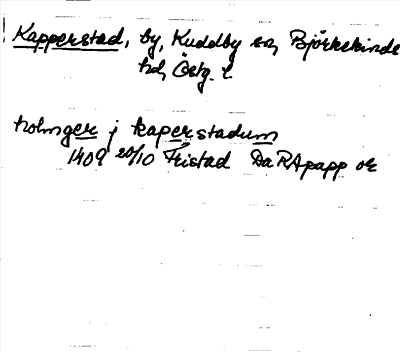 Kapperstad, by, Kuddby sn, Björkekinds
hd, Östg. l.
holmger j kaperstadum
1409 20/10 Fristad DaRApapp or